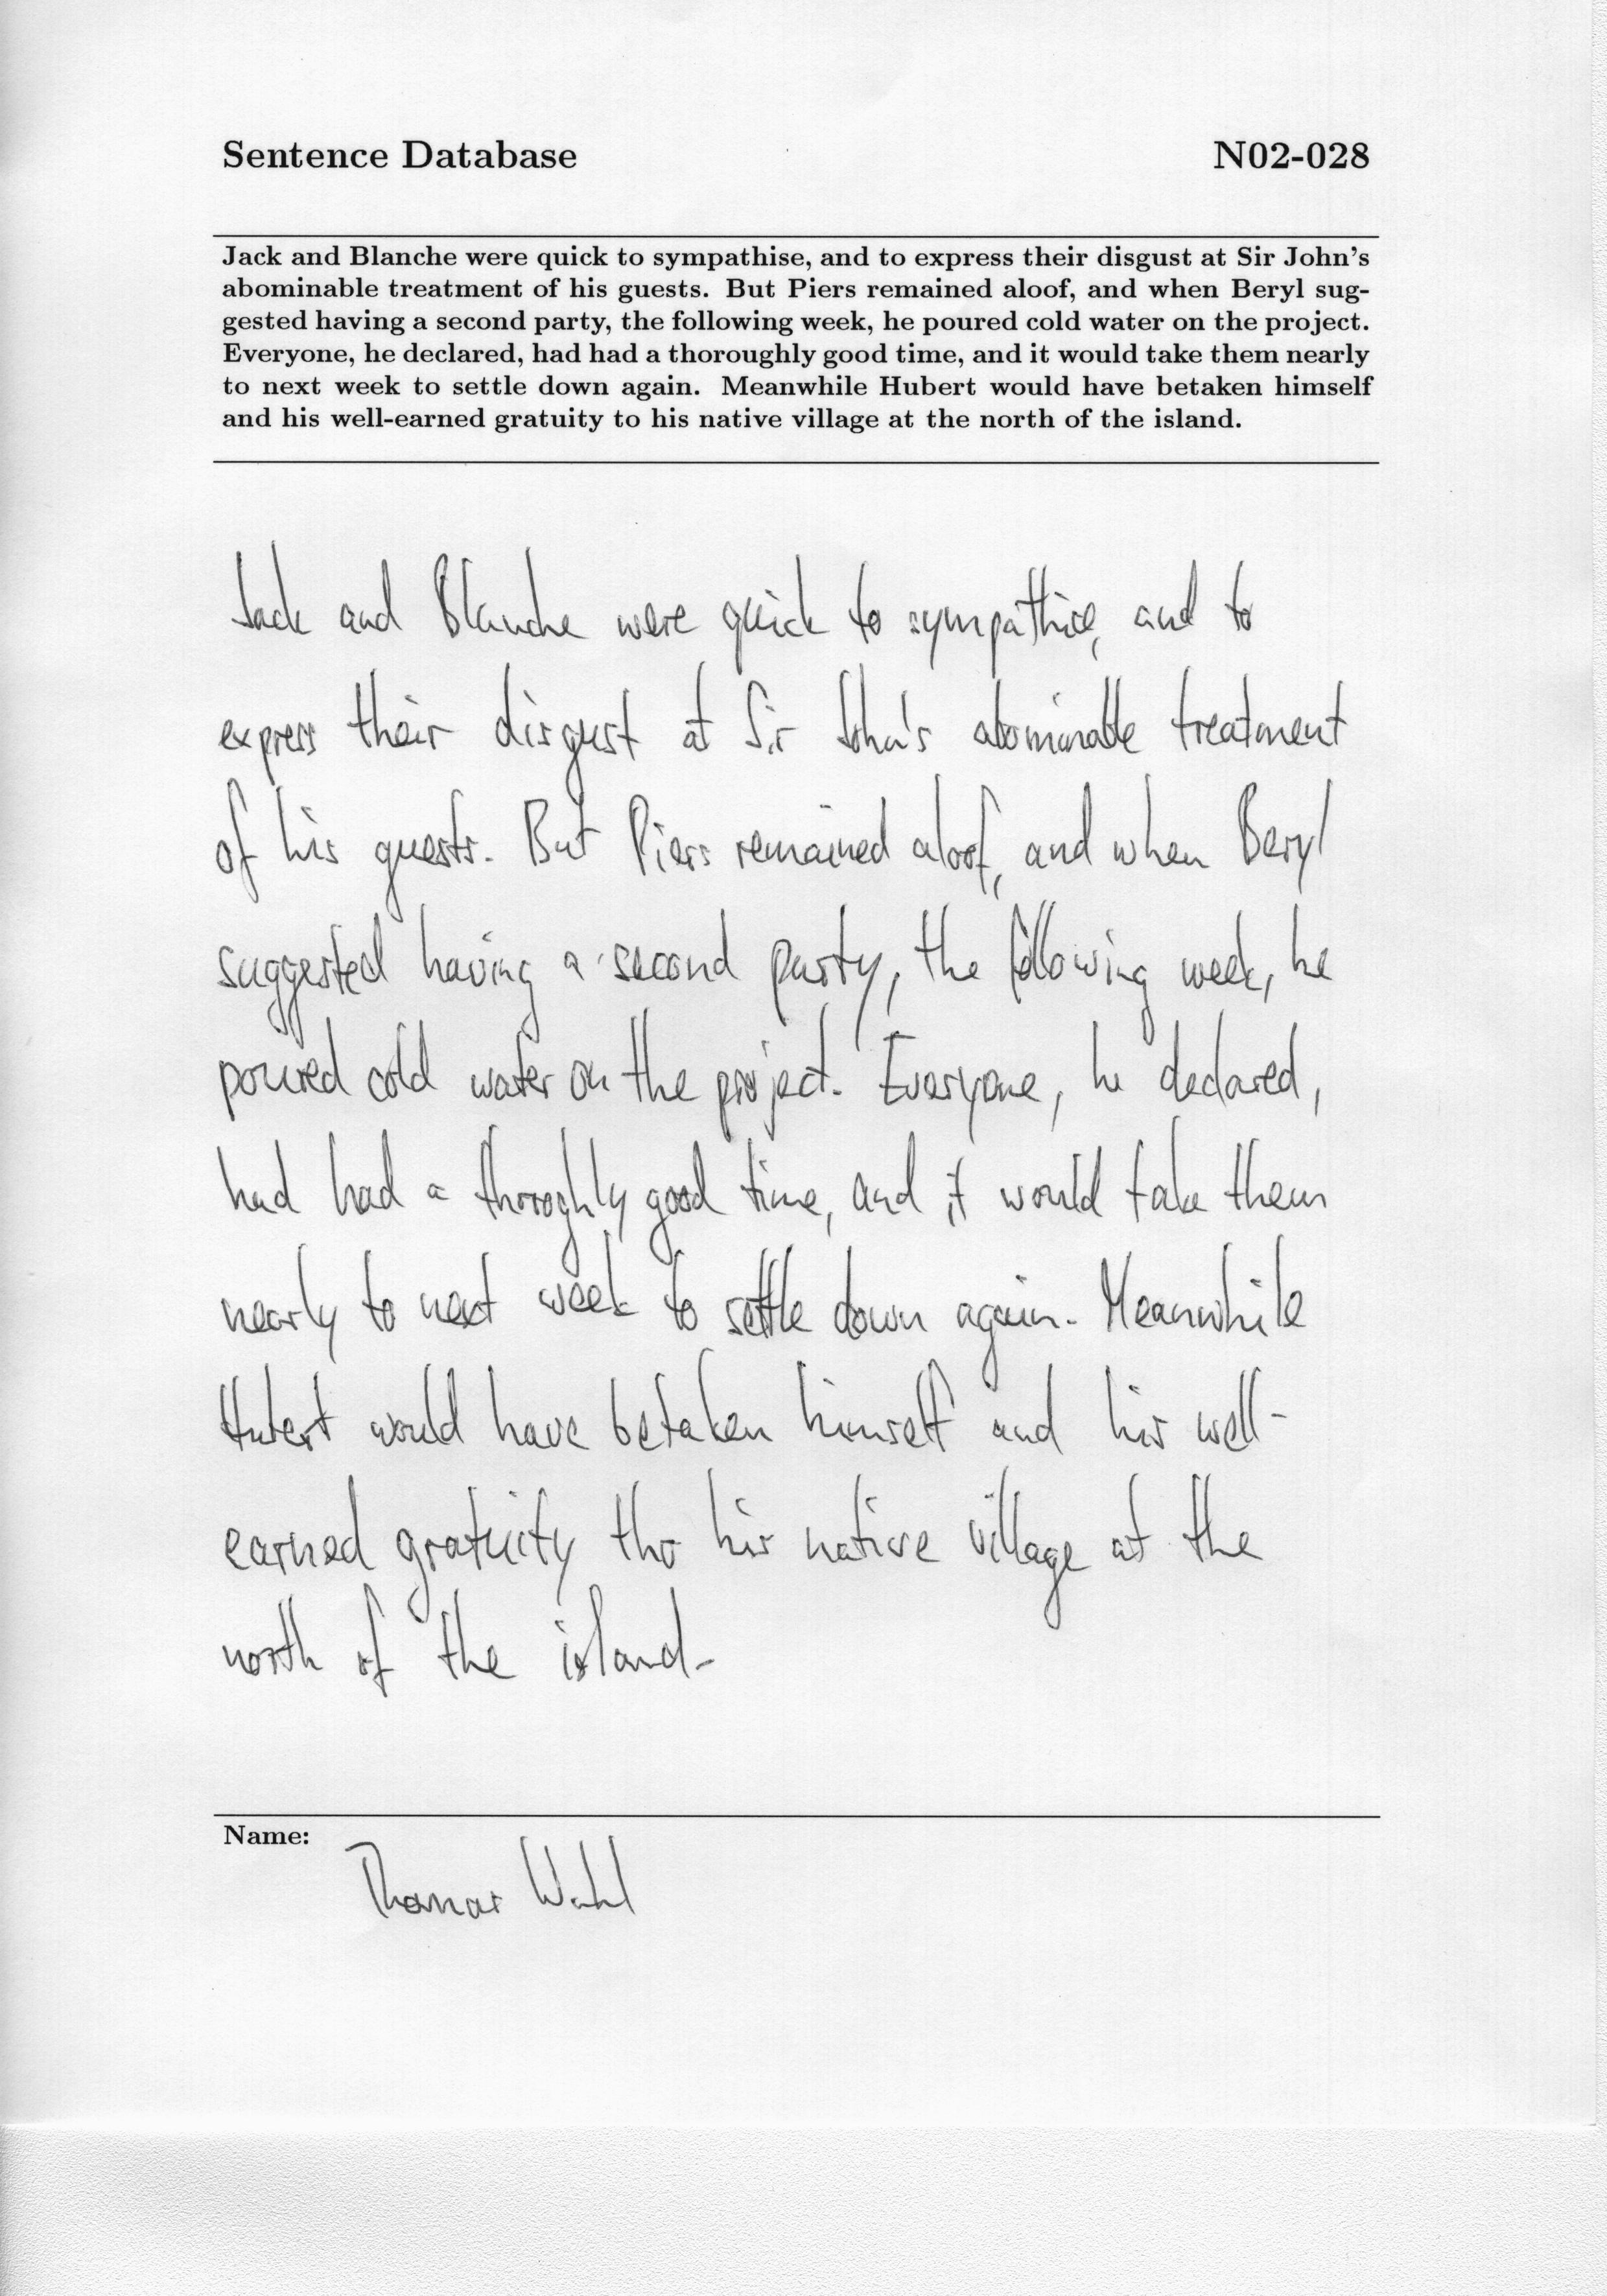 Sentence Database N02-028
Jack and Blanche were quick to sympathise, and to express their disgust at Sir John's
abominable treatment of his guests. But Piers remained aloof, and when Beryl sug-
gested having a second party, the following week, he poured cold water on the project.
Everyone, he declared, had had a thoroughly good time, and it would take them nearly
to next week to settle down again. Meanwhile Hubert would have betaken himself
and his well-earned gratuity to his native village at the north of the island.
Jack and Blanche were quick to sympathise, and to
express their disgust at Sir John's abominable treatment
of his guests. But Piers remained aloof, and when Beryl
suggested having a second party, the following week, he
poured cold water on the project. Everyone, he declared,
had had a throroghly good time, and it would take them
nearly to next week to settle down again. Meanwhile
Hubert would have betaken himself and his well-
earned gratuity tho his native village at the
north of the island.
Name:
Thomas Wahl